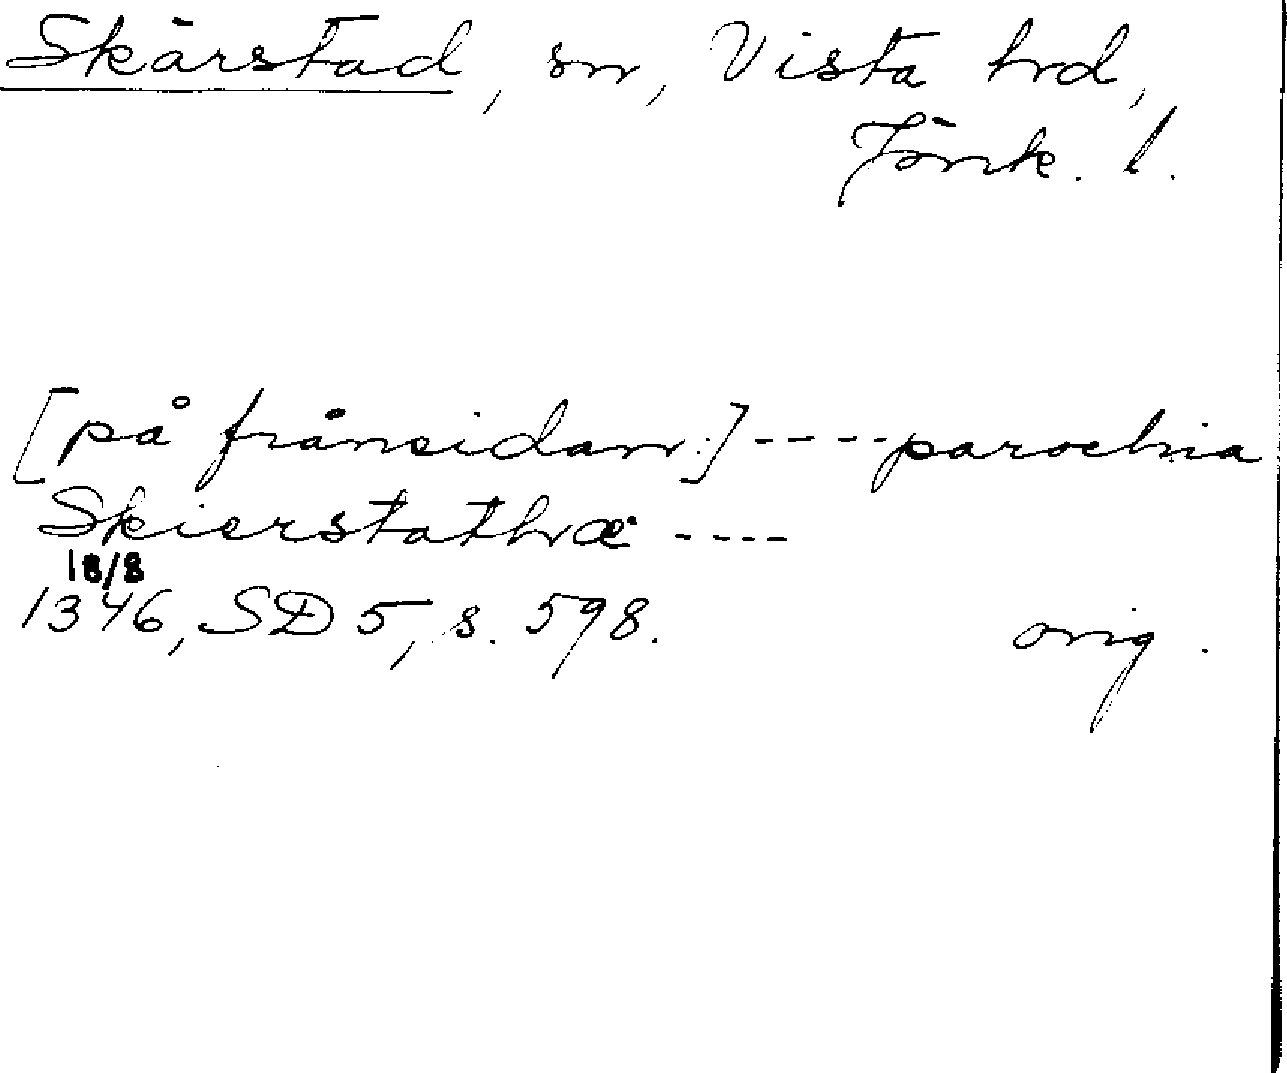 Skärstad, sn, Vista hrd,
Jönk. l.
[på frånsidan:] ---- parochia
Skierstathæ ----
18/8
1346, SD 5, s. 598.
orig.